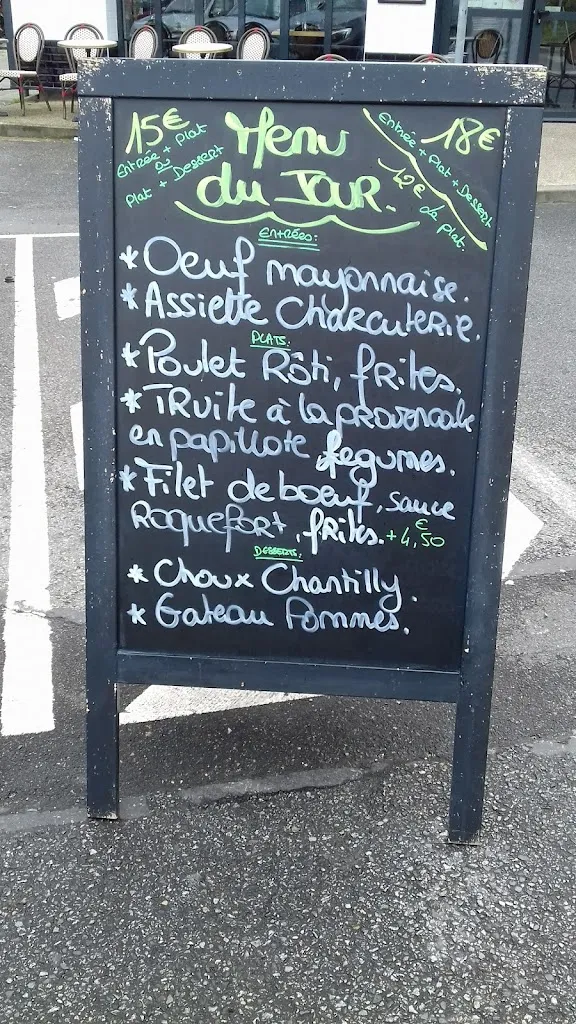 15€
Entrée + Plat
ou
Plat + Dessert
Menu
du JOUR.
18€
Entrée + Plat + Dessert
12€ le plat.
ENTRÉES:
* Oeuf mayonnaise.
* Assiette Charcuterie.
PLATS:
* Poulet Rôti, frites.
* Truite à la provençale
en papillote légumes.
* Filet de boeuf, sauce
Roquefort, frites. +4,50€
DESSERTS:
* Choux Chantilly.
* Gateau Pommes.